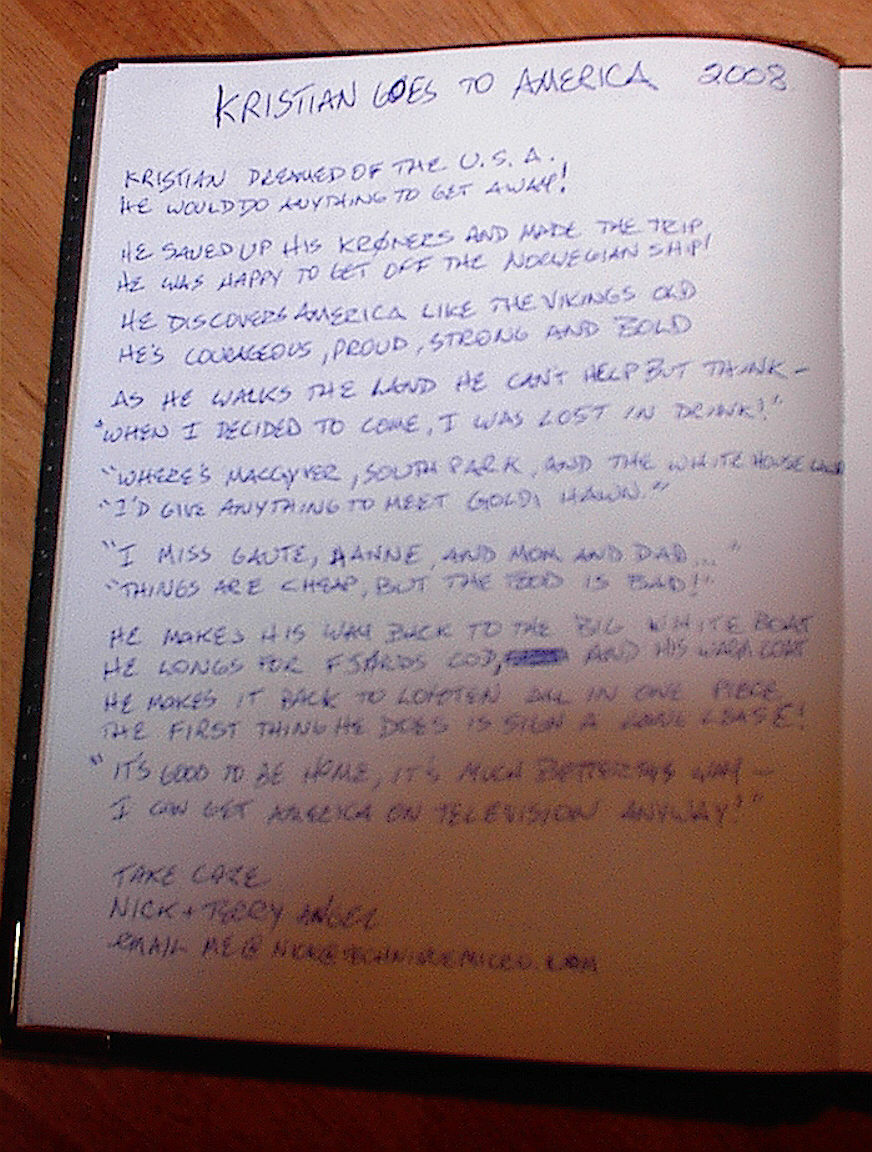 KRISTIAN GOES TO AMERICA 2008
KRISTIAN DREAMED OF THE U.S.A.
HE WOULD DO ANYTHING TO GET AWAY!
HE SAVED UP HIS KRØNERS AND MADE THE TRIP,
HE WAS HAPPY TO GET OFF THE NORWEGIAN SHIP!
HE DISCOVERS AMERICA LIKE THE VIKINGS OLD
HE'S COURAGEOUS, PROUD, STRONG AND BOLD
AS HE WALKS THE LAND HE CAN'T HELP BUT THINK –
"WHEN I DECIDED TO COME, I WAS LOST IN DRINK!"
"WHERE'S MACGYVER, SOUTH PARK, AND THE WHITE HOUSE LAWN
"I'D GIVE ANYTHING TO MEET GOLDI HAWN."
"I MISS GAUTE, HANNE, AND MOM AND DAD..."
"THINGS ARE CHEAP, BUT THE FOOD IS BAD!"
HE MAKES HIS WAY BACK TO THE BIG WHITE BOAT
HE LONGS FOR FJØRDS COD, AND HIS WARM COAT
HE MAKES IT BACK TO LOFOTEN ALL IN ONE PIECE,
THE FIRST THING HE DOES IS SIGN A LONG LEASE!
"IT'S GOOD TO BE HOME, IT'S MUCH BETTER THIS WAY –
I CAN GET AMERICA ON TELEVISION ANYWAY!"
TAKE CARE
NICK + TERRY
EMAIL ME @